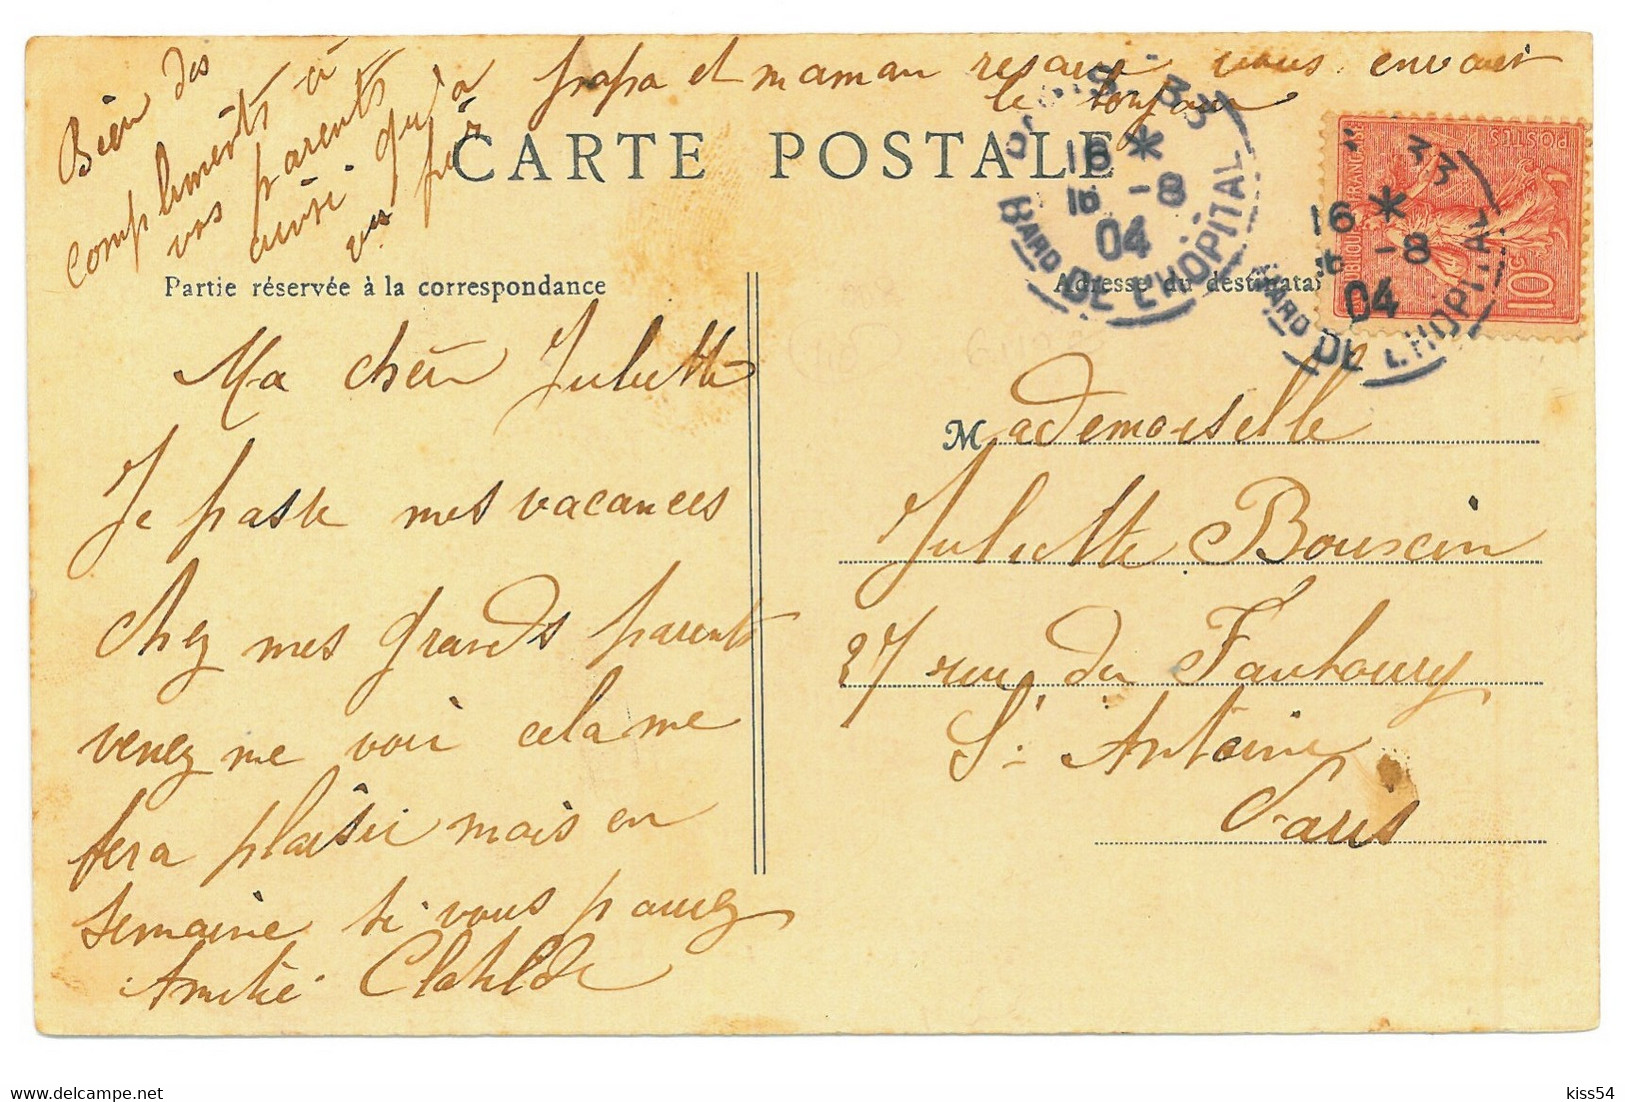 Bien des
compliments à
vos parents
ainsi qu'à
vos
papa et maman vous envoie
le
CARTE POSTALE
Partie réservée à la correspondance
Adresse du destinatai
33
16 *
16 -8
04
BARD DE L'HOPITAL
33
16 *
16 -8
04
BARD DE L'HOPITAL
REPUBLIQUE FRANCAISE
POSTES
10c
Ma chère Juliette
Je passe mes vacances
chez mes grands parents
venez me voir cela me
fera plaisir mais en
semaine si vous pouvez
Amitié Clotilde
Mademoiselle
Juliette Bouscin
27 rue du Faubourg
St Antoine
Paris
kiss54